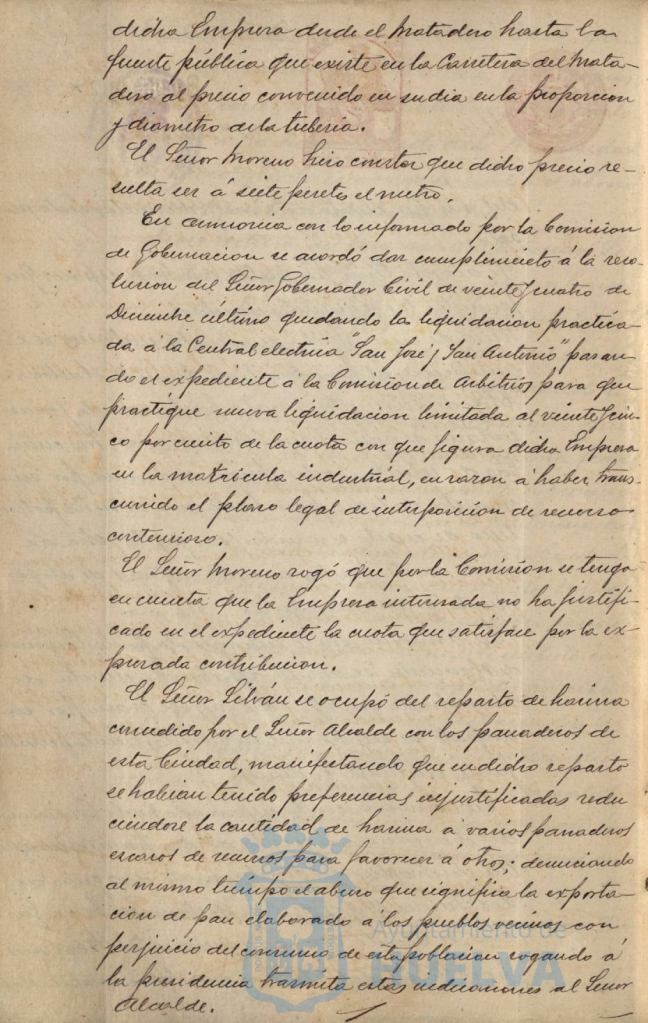 dicha Empresa desde el Matadero hasta la
fuente pública que existe en la Carretera del Mata-
dero al precio convenido en su dia en la proporcion
y diametro de la tuberia.
El Señor Moreno hizo constar que dicho precio re-
sulta ser á siete pesetas el metro.
En armonia con lo informado por la Comision
de Gobernacion se acordó dar cumplimiento á la reso-
lucion del Señor Gobernador Civil de veinte y cuatro de
Diciembre último quedando la liquidacion practica-
da á la Central electrica "San José y San Antonio" pasan-
do el expediente á la Comision de Arbitrios para que
practique nueva liquidacion limitada al veinte y cin-
co por ciento de la cuota con que figura dicha Empresa
en la matrícula industrial, en razon á haber trans-
currido el plazo legal de interposicion de recurso
contencioso.
El Señor Moreno rogó que por la Comision se tenga
en cuenta que la Empresa interesada no ha justifi-
cado en el expediente la cuota que satisface por la ex-
presada contribucion.
El Señor Silván se ocupó del reparto de harina
concedido por el Señor Alcalde con los panaderos de
esta Ciudad, manifestando que en dicho reparto
se habian tenido preferencias injustificadas redu
ciendose la cantidad de harina á varios panaderos
escasos de recursos para favorecer á otros; denunciando
al mismo tiempo el abuso que significa la exporta-
cion de pan elaborado á los pueblos vecinos con
perjuicio del consumo de esta poblacion rogando á
la presidencia trasmita estas indicaciones al Señor
Alcalde.
Ayuntamiento de
HUELVA